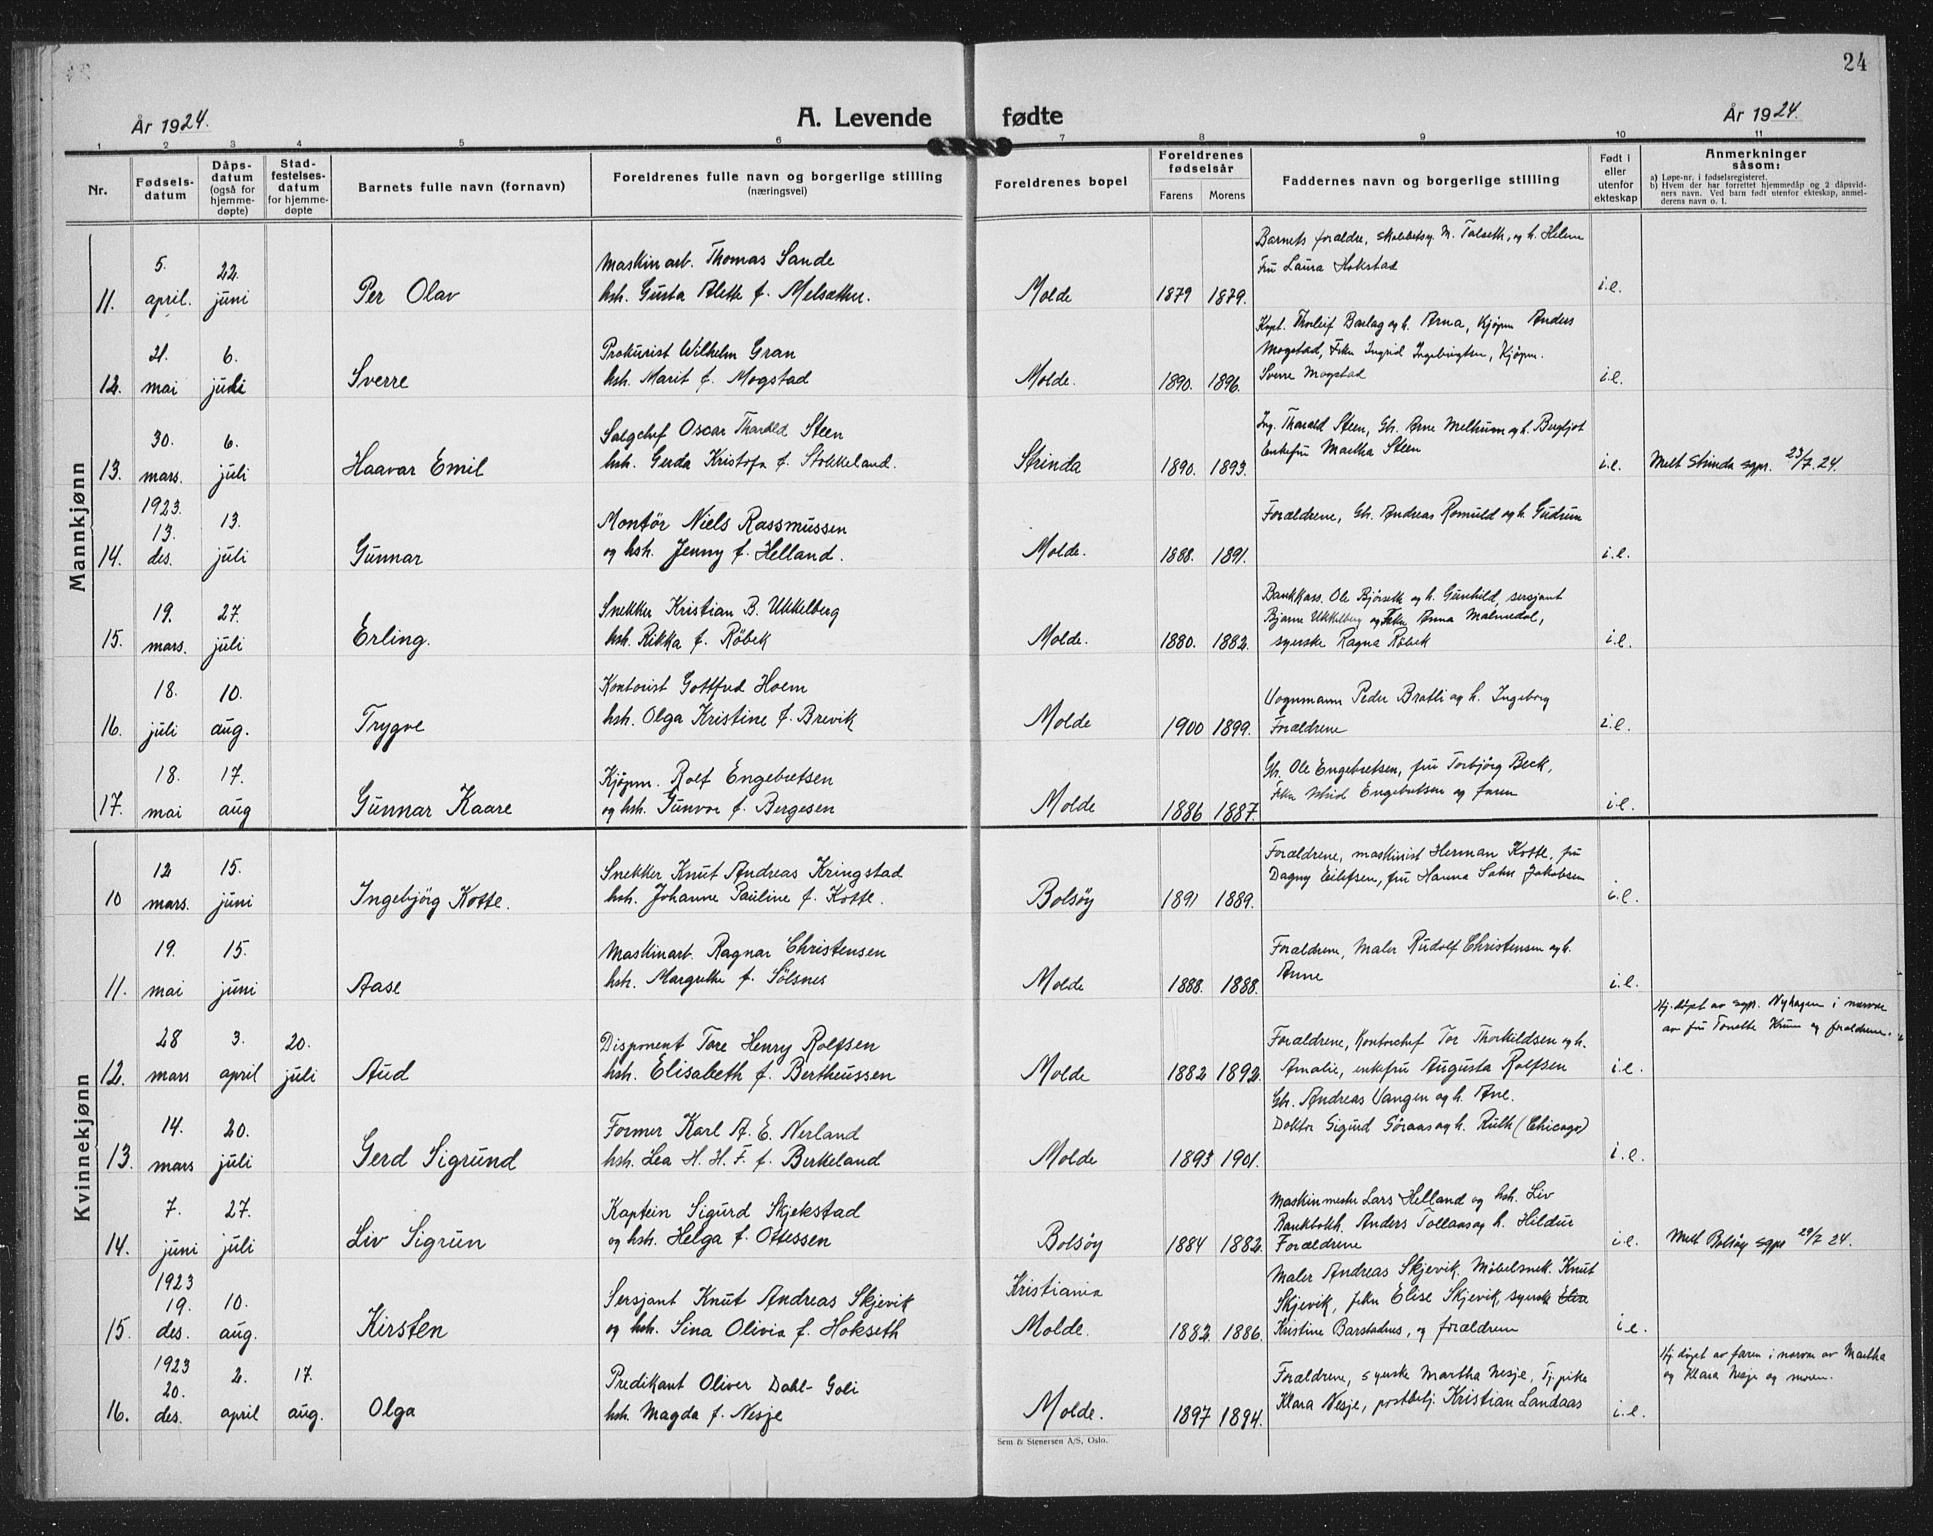 24
År 1924.
A. Levende fødte
År 1924.
1 2 3 4 5 6 7 8 9 10 11
Nr.
Fødsels-
datum
Dåps-
datum
(også for
hjemme-
døpte)
Stad-
festelses-
datum
for hjemme-
døpte
Barnets fulle navn (fornavn)
Foreldrenes fulle navn og borgerlige stilling
(næringsvei)
Foreldrenes bopel
Foreldrenes
fødselsår
Farens Morens
Faddernes navn og borgerlige stilling
Født i
eller
utenfor
ekteskap
Anmerkninger
såsom:
a) Løpe-nr. i fødselsregisteret.
b) Hvem der har forrettet hjemmedåp og 2 dåpsvid-
ners navn. Ved barn født utenfor ekteskap, anmel-
derens navn o. l.
Mannkjønn
Barnets foraldre, M. Talseth, og h. Helene
5. 22. Maskinarb. Thomas Sande Fru Laura Hokstad
11. april. juni Per Olav hsh. Gusta Alette f. Melsæther. Molde 1879 1879. i.e.
Kapt. Thorleif Barlag og h. Arna, Kjøpm Anders
21. 6. Prokurist Wilhelm Gran Mogstad, Frkn Ingrid Ingebrigtsen, Kjøpm.
12. mai juli Sverre hsh. Marit f. Mogstad Molde. 1890. 1896. Sverre Mogstad i.e.
30. 6. Salgchef Oscar Tharald Steen Ing. Tharald Steen, Gh. Arne Melhum og h. Bergljot
13. mars. juli Haavar Emil hsh. Gerda Kristofa f. Stokkeland. Strinda 1890. 1893. Enkefru Martha Steen i.e. Melt Strinda sgpr. 23/7.24.
1923.
13. 13. Montør Niels Rassmussen Forældrene, Gh. Andreas Romuld og h. Gudrun
14. des. juli Gunnar og hsh. Jenny f. Helland. Molde. 1888. 1891. i.e.
19. 27. Snekker Kristian B. Ukkelberg Bankkass. Ole Bjørseth og h. Gunhild, sersjant
Bjarne Ukkelberg og Frkn Anna Malmedal,
15. mars. juli Erling. hsh. Rikka f. Røbek Molde. 1880. 1882. syerske Ragna Røbek i.e.
18. 10. Kontorist Gottfred Hoem Vognmann Peder Bratli og h. Ingeborg
16. juli aug. Trygve hsh. Olga Kristine f. Brevik Molde 1900 1899. Forældrene i.e.
18. 17. Kjøpm. Rolf Engebretsen Gh. Ole Engebretsen, fru Torbjørg Beck,
17. mai aug Gunnar Kaare og hsh. Gunvor f. Bergesen Molde 1886 1887. Frkn Engebretsen og faren i.e.
Kvinnekjønn
12 15. Snekker Knut Andreas Kringstad Forældrene, maskinist Herman Kotte, fru
10 mars. juni Ingebjörg Kotte. hsh. Johanne Pauline f. Kotte. Bolsøy 1891 1889. Dagny Eilefsen, fru Hanna Jakobsen i.e.
19. 15. Maskinarb. Ragnar Christensen Forældrene, Maler Rudolf Christensen og h.
11. mai juni Aase hsh. Margrethe f. Sölsnes Molde 1888. 1888. Anne i.e.
Hj. døpt av sgpr. Nyhagen i nærvær
av fru Tonette Krum og forældrene.
28 3. 20. Disponent Tore Henry Rolfsen Forældrene, Kontorchef Tor Thorkildsen og h.
12. mars april juli Aud hsh. Elisabeth f. Bertheussen Molde 1882 1892. Amalie, enkefru Augusta Rolfsen i.e.
Gh. Andreas Vangen og h. Ane.
14. 20. Former Karl A. E. Nerland Doktor Sigurd Göraas og h. Ruth (Chicago)
13. mars juli Gerd Sigrund hsh. Lea H. H. F. f. Birkeland Molde 1893 1901. i.e.
7. 27. Kaptein Sigurd Skjekstad Maskinmester Lars Helland og hsh. Liv
Bankbokh. Anders Tollaas og h. Hildur
14. juni juli Liv Sigrun og hsh. Helga f. Ottessen Bolsøy 1884 1882. Forældrene i.e. Melt Bolsøy sgpr 29/7 24.
1923 Kristiania Maler Andreas Skjevik. Møbelsnek. Knut
19. 10. Sersjant Knut Andreas Skjevik Skjevik, frkn Elise Skjevik, syersk Elise
15. des. aug. Kirsten og hsh. Sina Olivia f. Hokseth Molde. 1882. 1886. Kristine Barstadnes, og forældrene i.e.
Hj. døpt av faren i nærvær av Martha
og Klara Nesje og moren.
1923
20. 2. 17. Predikant Oliver Dahl-Goli Forældrene, syerske Martha Nesje, Tj.pike
16. des. april aug. Olga hsh. Magda f. Nesje Molde. 1897 1894. Klara Nesje, postbetj. Kristian Landaas i.e.
Sem & Stenersen A/S, Oslo.